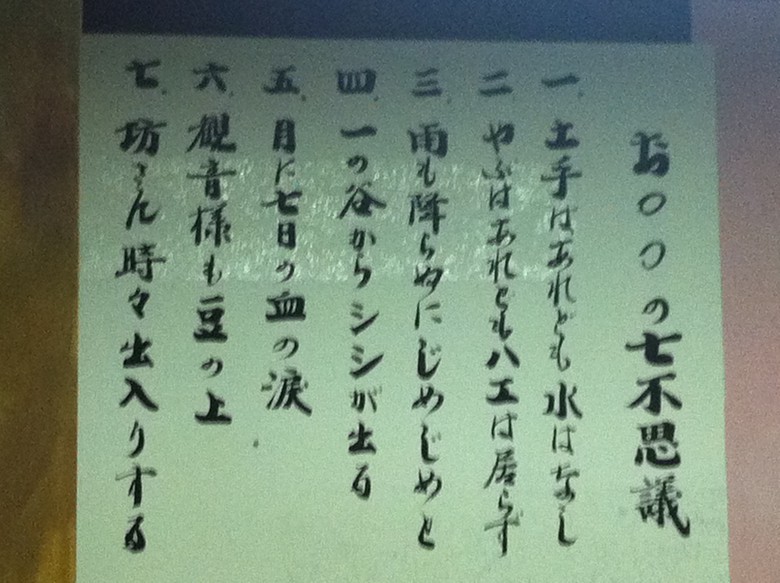 お〇〇の七不思議
一、土手はあれども水はなし
二、やぶはあれどもハエは居らず
三、雨も降らぬにじめじめと
四、一の谷からシシが出る
五、月に七日の血の涙
六、観音様も豆の上
七、坊さん時々出入りする